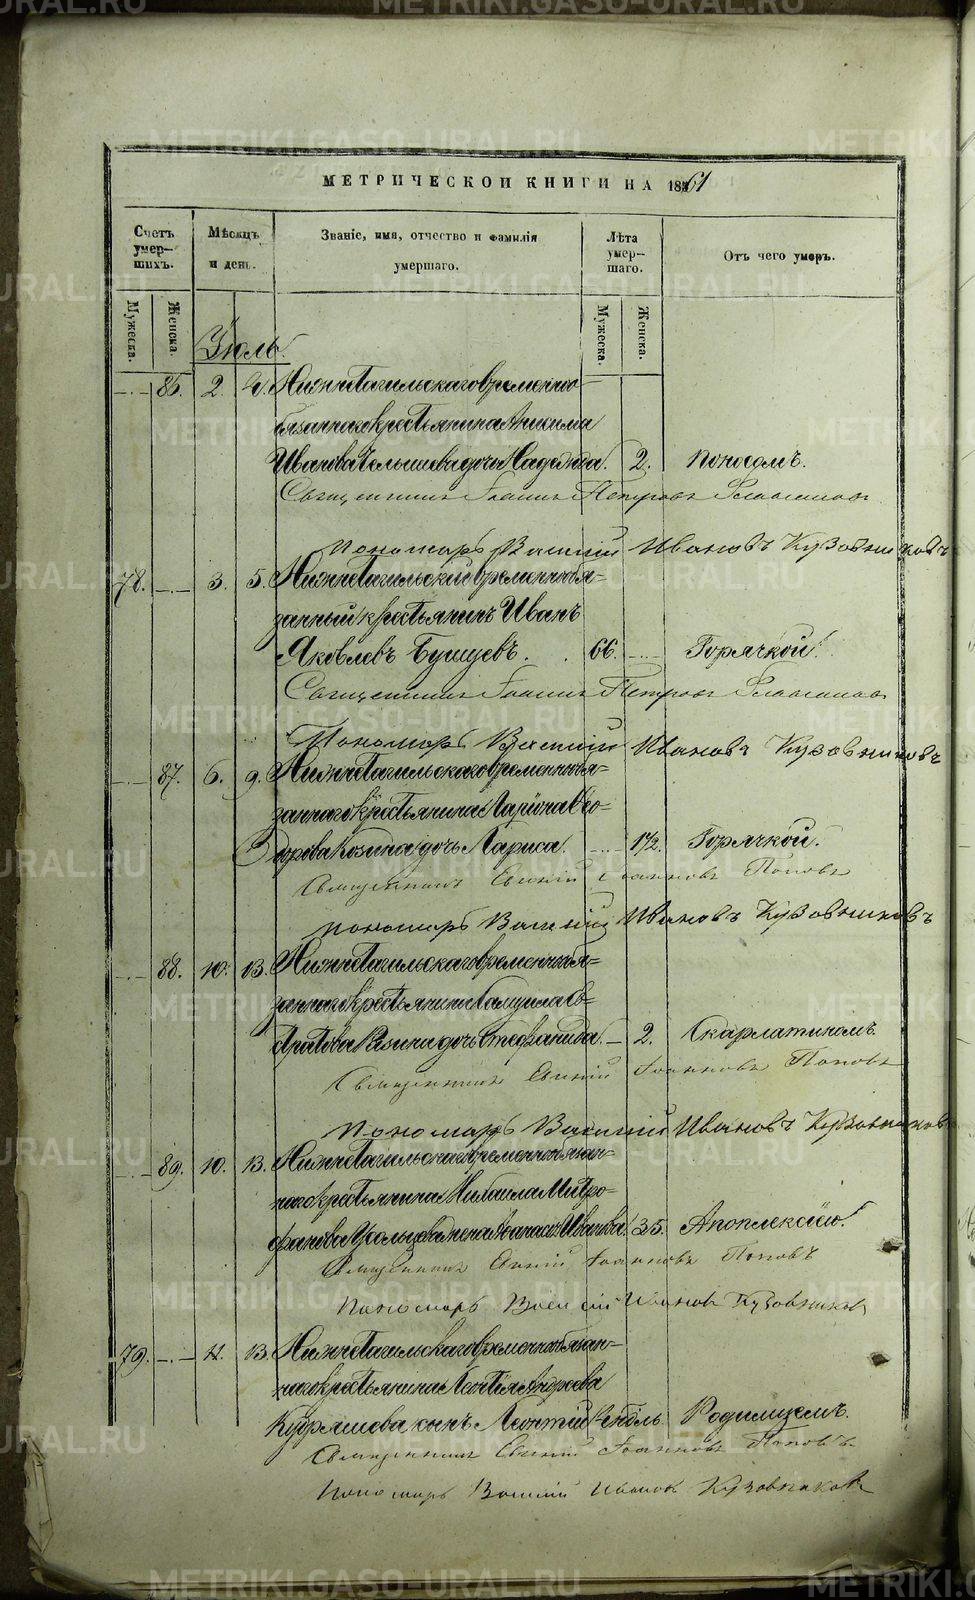 МЕТРИЧЕСКОЙ КНИГИ НА 1861
Счетъ умер-шихъ.
Мѣсяцъ и день.
Званіе, имя, отчество и фамилія умершаго.
Лѣта умер-шаго.
Отъ чего умеръ.
Мужеска. Женска.
Мужеска. Женска.
Іюль.
86. 2. 4. Нижнетагильскаго временно-
бязаннаго крестьянина Анисима
Иванова дочь Надежда. 2. Поносомъ.
Священникъ Іоаннъ Петровъ
Пономарь Василій Ивановъ Кузовниковъ
78. 3. 5. Нижнетагильскій временнобя-
занный крестьянинъ Иванъ
Яковлевъ Бушуевъ. 66. Горячкой.
Священникъ Іоаннъ Петровъ
Пономарь Василій Ивановъ Кузовниковъ
87. 6. 9. Нижнетагильскаго временнобя-
заннаго крестьянина Ларіона Ѳео-
дорова Козина дочь Лариса. 1 1/2. Горячкой.
Священникъ Евгеній Іоанновъ Поповъ
Пономарь Василій Ивановъ Кузовниковъ
88. 10. 13. Нижнетагильскаго временнобя-
заннаго крестьянина
дочь Стефанида. 2. Скарлатиномъ.
Священникъ Евгеній Іоанновъ Поповъ
Пономарь Василій Ивановъ Кузовниковъ
89. 10. 13. Нижнетагильскаго временнобязан-
наго крестьянина Михаила Митро-
фанова жена Иванова. 35. Апоплексіею.
Священникъ Евгеній Іоанновъ Поповъ
Пономарь Василій Ивановъ Кузовниковъ
79. 11. 13. Нижнетагильскаго временнобязан-
наго крестьянина Леонтія Андреева
Кудряшова сынъ Леонтій Родимцемъ.
Священникъ Евгеній Іоанновъ Поповъ
Пономарь Василій Ивановъ Кузовниковъ
METRIKI.GASO-URAL.RU